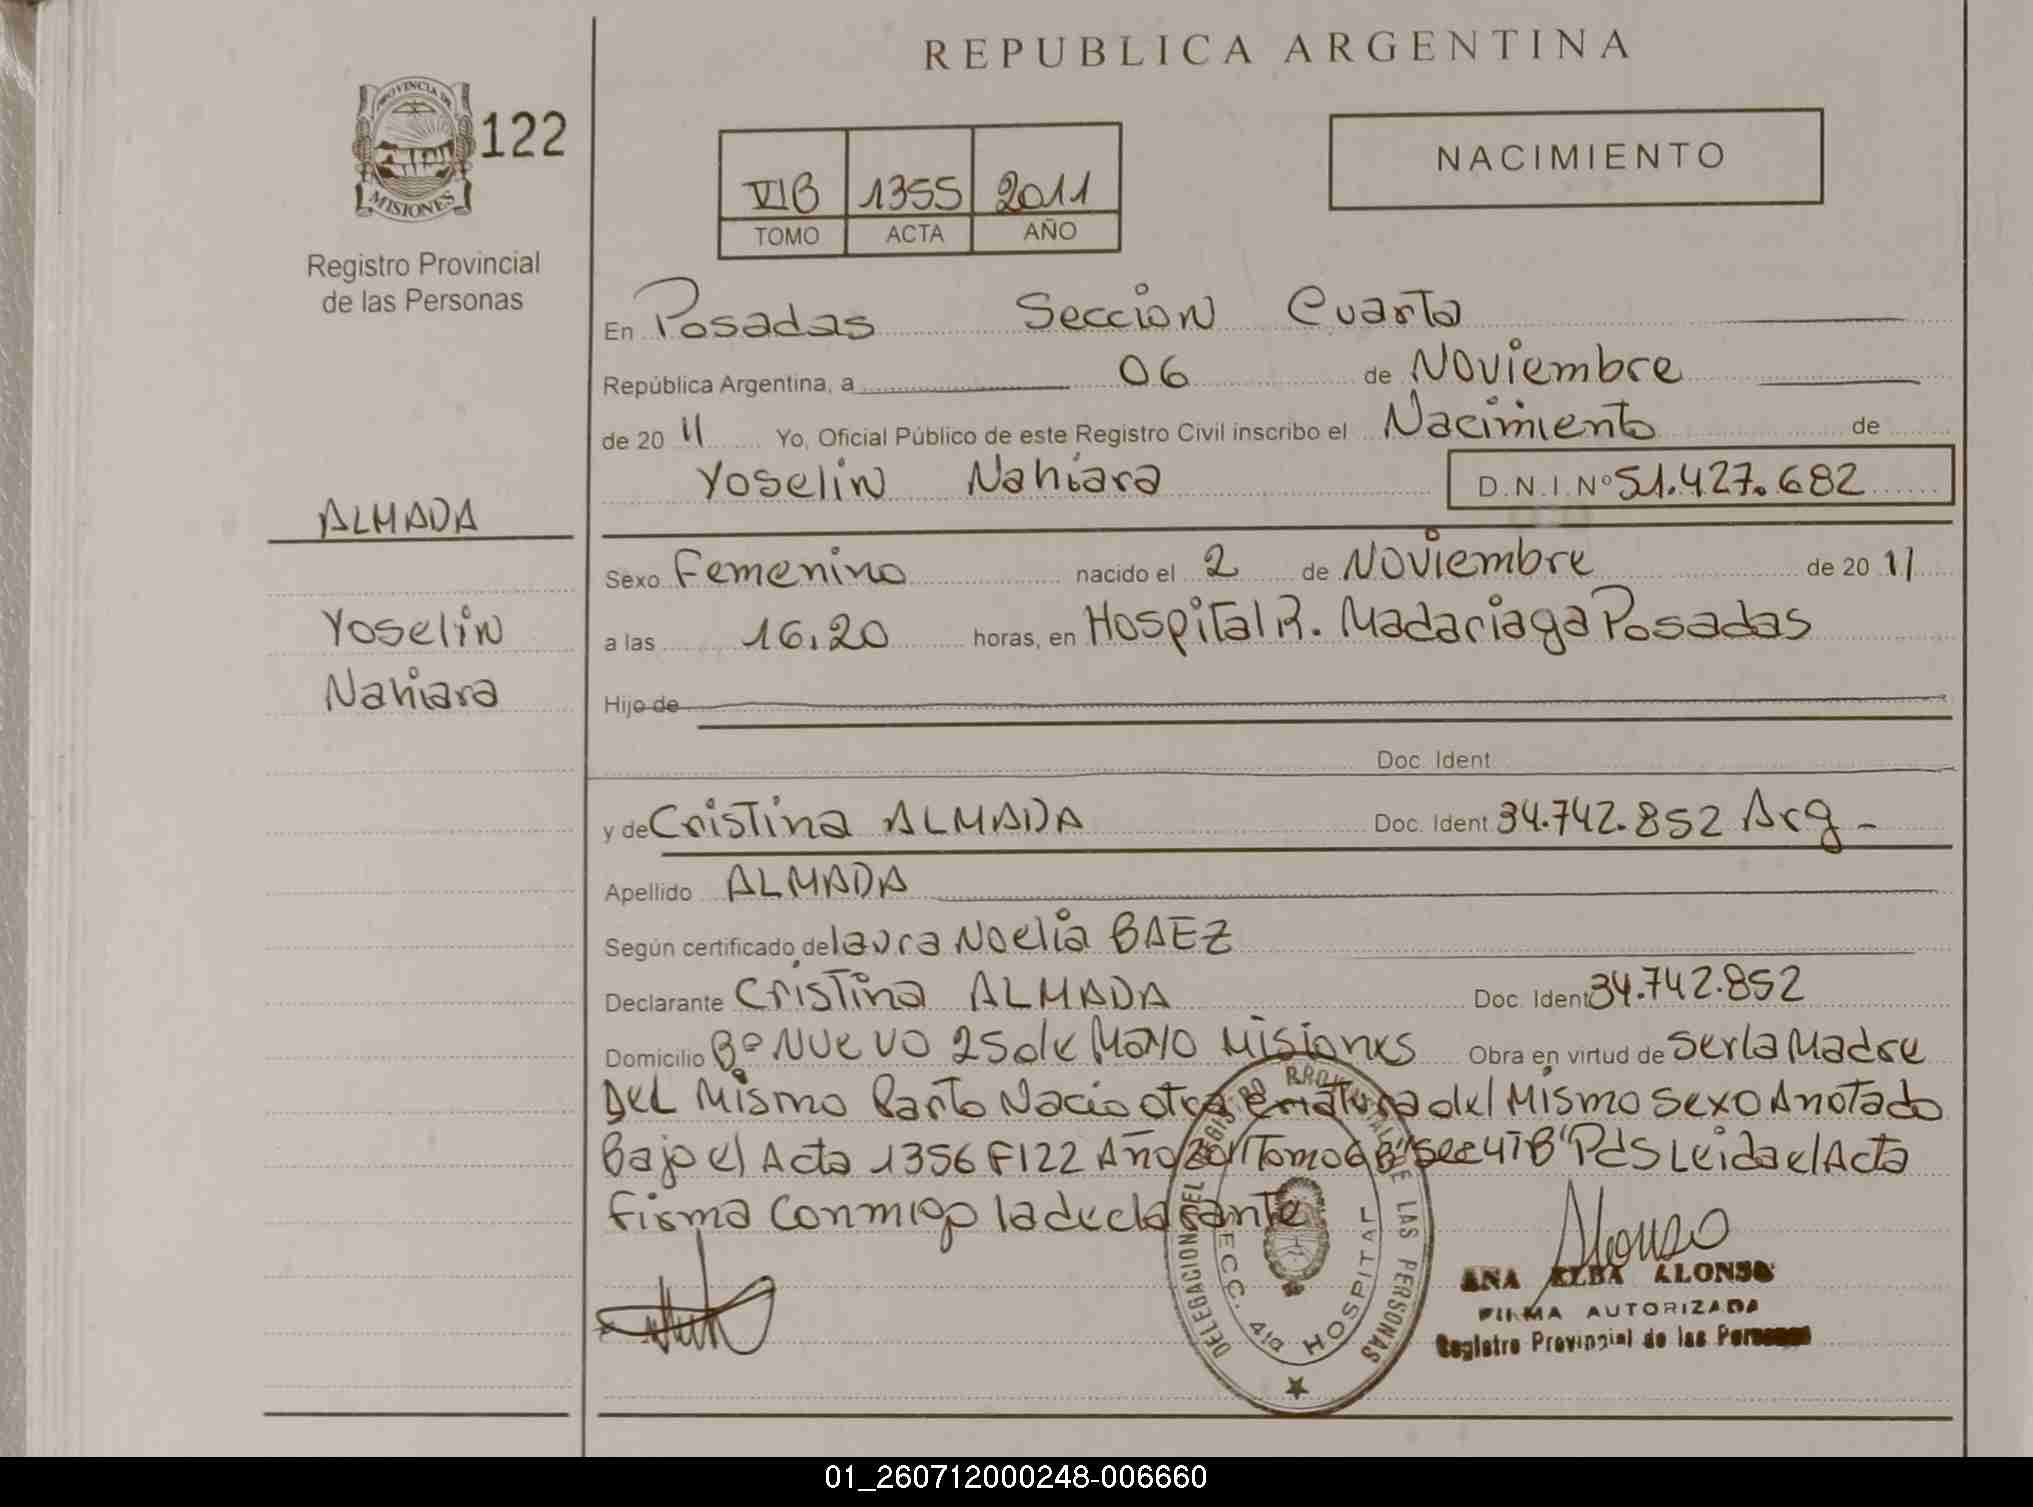 REPUBLICA ARGENTINA
PROVINCIA DE
MISIONES
122
NACIMIENTO
VIB 1355 2011
TOMO ACTA AÑO
Registro Provincial
de las Personas
En Posadas Sección Cuarta
República Argentina, a 06 de Noviembre
de 20 11 Yo, Oficial Público de este Registro Civil inscribo el Nacimiento de
Yoselin Nahiara D.N.I. Nº 51.427.682
ALMADA
Yoselin
Nahiara
Sexo Femenino nacido el 2 de Noviembre de 20 11
a las 16.20 horas, en Hospital R. Madariaga Posadas
Hijo de
Doc. Ident.
y de Cristina ALMADA Doc. Ident 34.742.852 Arg -
Apellido ALMADA
Según certificado de laura Noelia BAEZ
Declarante Cristina ALMADA Doc. Ident 34.742.852
Domicilio Bº NUEVO 25 de Mayo Misiones Obra en virtud de Ser la Madre
DEL Mismo Parto Nacio otra criatura del Mismo sexo Anotado
Bajo el Acta 1356 F122 Año 2011 Tomo 6 B" Sec 4TB" Pds Leida el Acta
firma Conmigo la declarante
DELEGACION DEL REGISTRO PROVINCIAL DE LAS PERSONAS
SECC. 4ta HOSPITAL
Alonso
ANA ELBA ALONSO
FIRMA AUTORIZADA
Registro Provincial de las Personas
01_260712000248-006660